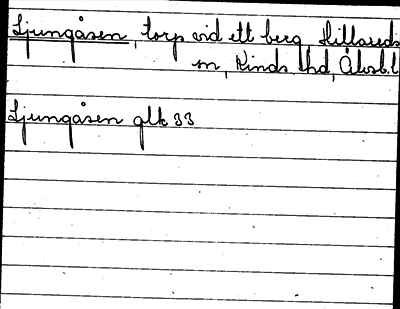 Ljungåsen, torp vid ett berg, Hillareds
sn, Kinds hd, Älvsb.l
Ljungåsen glk 33